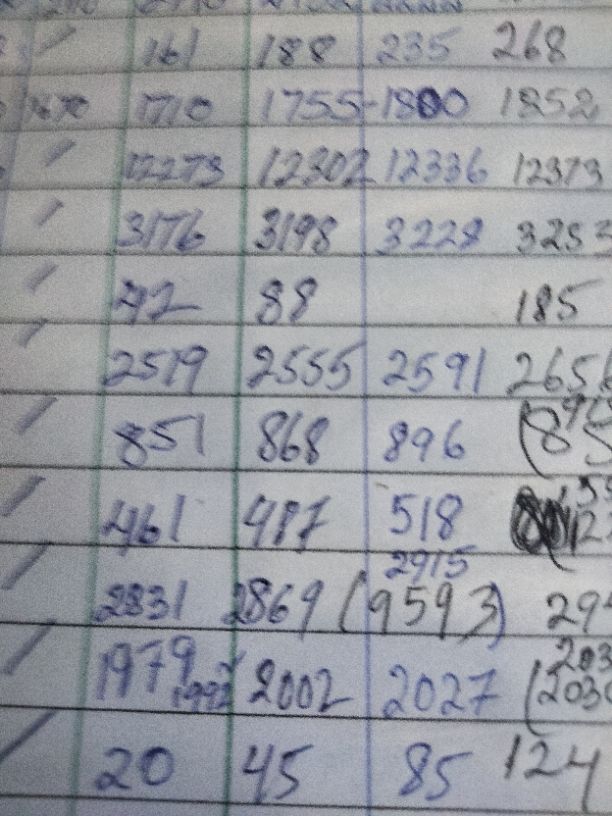 161 188 235 268
1670 1710 1755 1800 1852
12273 12302 12336 12373
3176 3198 3228 325
42 88 185
2519 2555 2591 265
851 868 896
461 487 518
2915
2831 2869 (9593) 29
1979 1992 2002 2027 (203
20 45 85 124